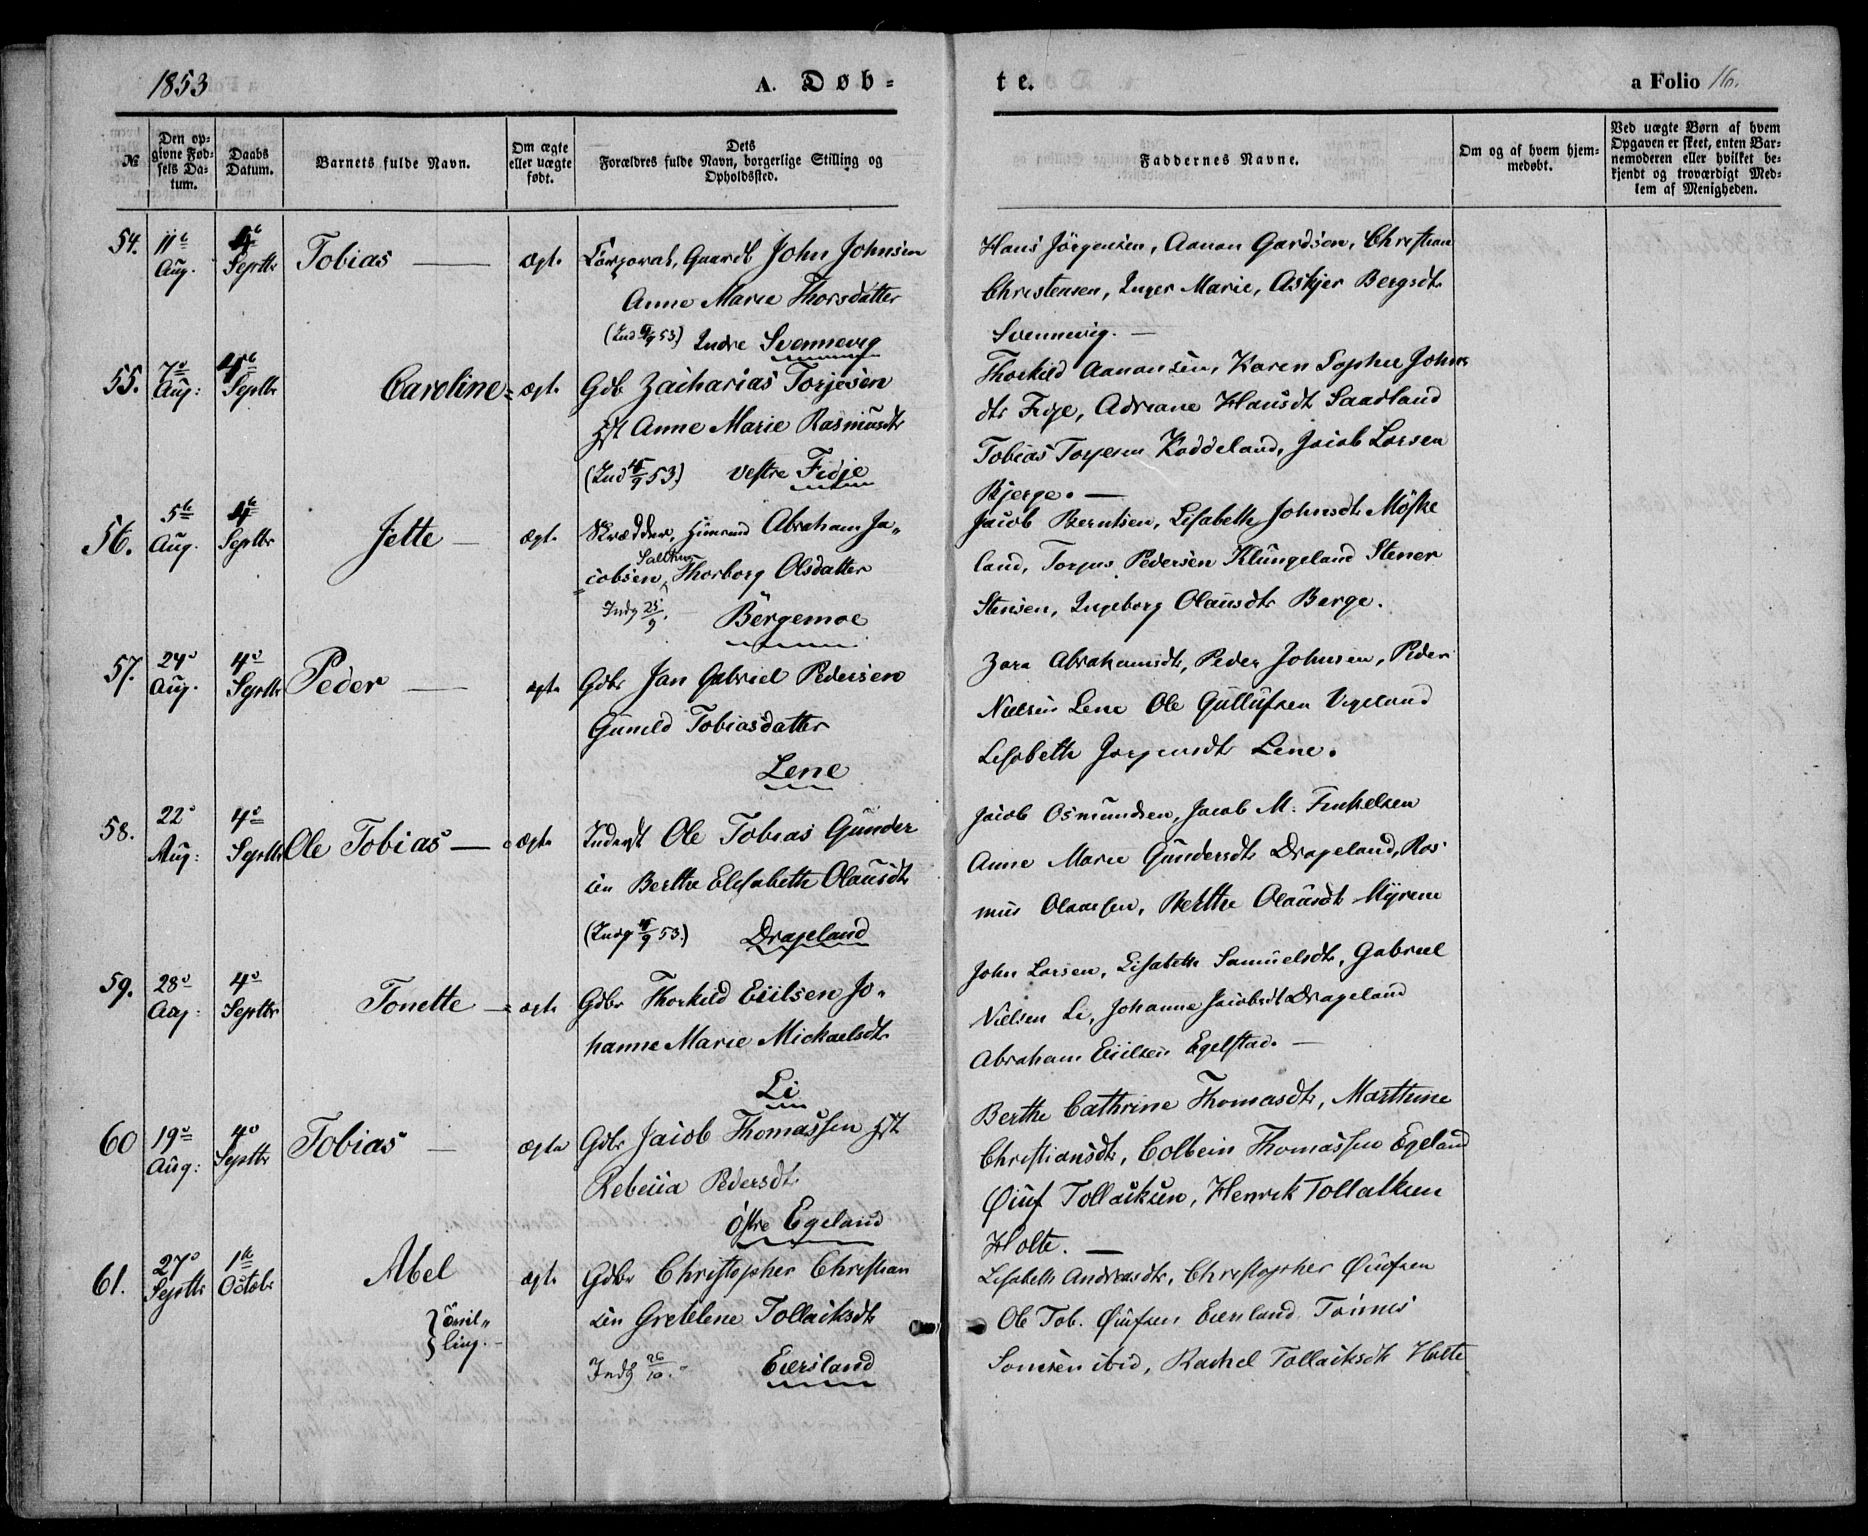 1853
A. Døb-
te.
a Folio 16.
№
Den op-
givne Fød-
sels Da-
tum.
Daabs
Datum.
Barnets fulde Navn.
Om ægte
eller uægte
født.
Dets
Forældres fulde Navn, borgerlige Stilling og
Opholdssted.
Faddernes Navne.
Om og af hvem hjem-
medøbt.
Ved uægte Børn af hvem
Opgaven er skeet, enten Bar-
nemoderen eller hvilket be-
kjendt og troværdigt Med-
lem af Menigheden.
54. 11te Aug. 4de Septbr Tobias — ægte
Corporal, Gaardb John Johnsen
Anne Marie Thorsdatter
Indre Svennevig
Hans Jörgensen, Aanon Gardsen, Christian
Christensen, Inger Marie, Askjer Bergsdtr
Svennevig. —
55. 7de Aug: 4de Septbr Caroline ægte
Gdb Zacharias Torjesen
Hst Anne Marie Rasmusdtr
Vestre Fidje
Thorkild Aanonsen, Karen Sophie Johns
dtr Fidje, Adriane Hansdtr Saadland
Tobias Torjesen Koddeland, Jacob Larsen
Bjerge. —
56. 5te Aug. 4de Septbr Jette — ægte
Skrædder, Huusmand Abraham Ja-
cobsen, Thorborg Olsdatter
Indg 25/9. Börgemoe
Jacob Berntsen, Lisabeth Johnsdtr Möske
land, Torjus Pedersen Klungeland Stener
Stensen, Ingeborg Olausdtr Berge.
57. 24de Aug. 4de Septbr Peder — ægte
Gdbr Jan Gabriel Pedersen
Gunild Tobiasdatter
Lene
Zara Abrahamsdtr, Peder Johnsen, Peder
Nielsen Lene Ole Gullufsen Vigeland
Lisabeth Jorgensdtr Lene.
58. 22de Aug: 4de Septbr Ole Tobias — ægte
Inderst Ole Tobias Gunder
sen Berthe Elisabeth Olausdtr
Drageland
Jacob Osmundsen, Jacob M. Finkelsen
Anne Marie Gundersdtr Drageland, Ras
mus Olaussen, Berthe Olausdtr Myrene
59. 28de Aug: 4de Septbr Tonette — ægte
Gdbr Thorkild Eiilsen Jo-
hanne Marie Mickaelsdtr
Li
John Larsen, Lisabeth Samuelsdtr, Gabriel
Nielsen Li, Johanne Jacobsdt Drageland
Abraham Eiilsen Egelstad. —
60 19de Aug: 4de Septbr Tobias — ægte
Gdbr Jacob Thomassen Hst
Rebecca Pedersdtr
Østre Egeland
Berthe Cathrine Thomasdtr, Marthine
Christiansdtr, Colbein Thomassen Egeland
Tollacksen, Henrik Tollaksen
Holte. —
61. 27de Septbr 1ste Octobr Abel ægte
Tvil-
ling. -
Gdbr Christopher Christian
sen Gretelene Tollacksdtr
Indg 26/10. Eiersland
Lisabeth Andreasdtr, Christopher
Ole Tob. Eiersland Tönnes
Samsen ibid, Rachel Tollacksdtr Holte